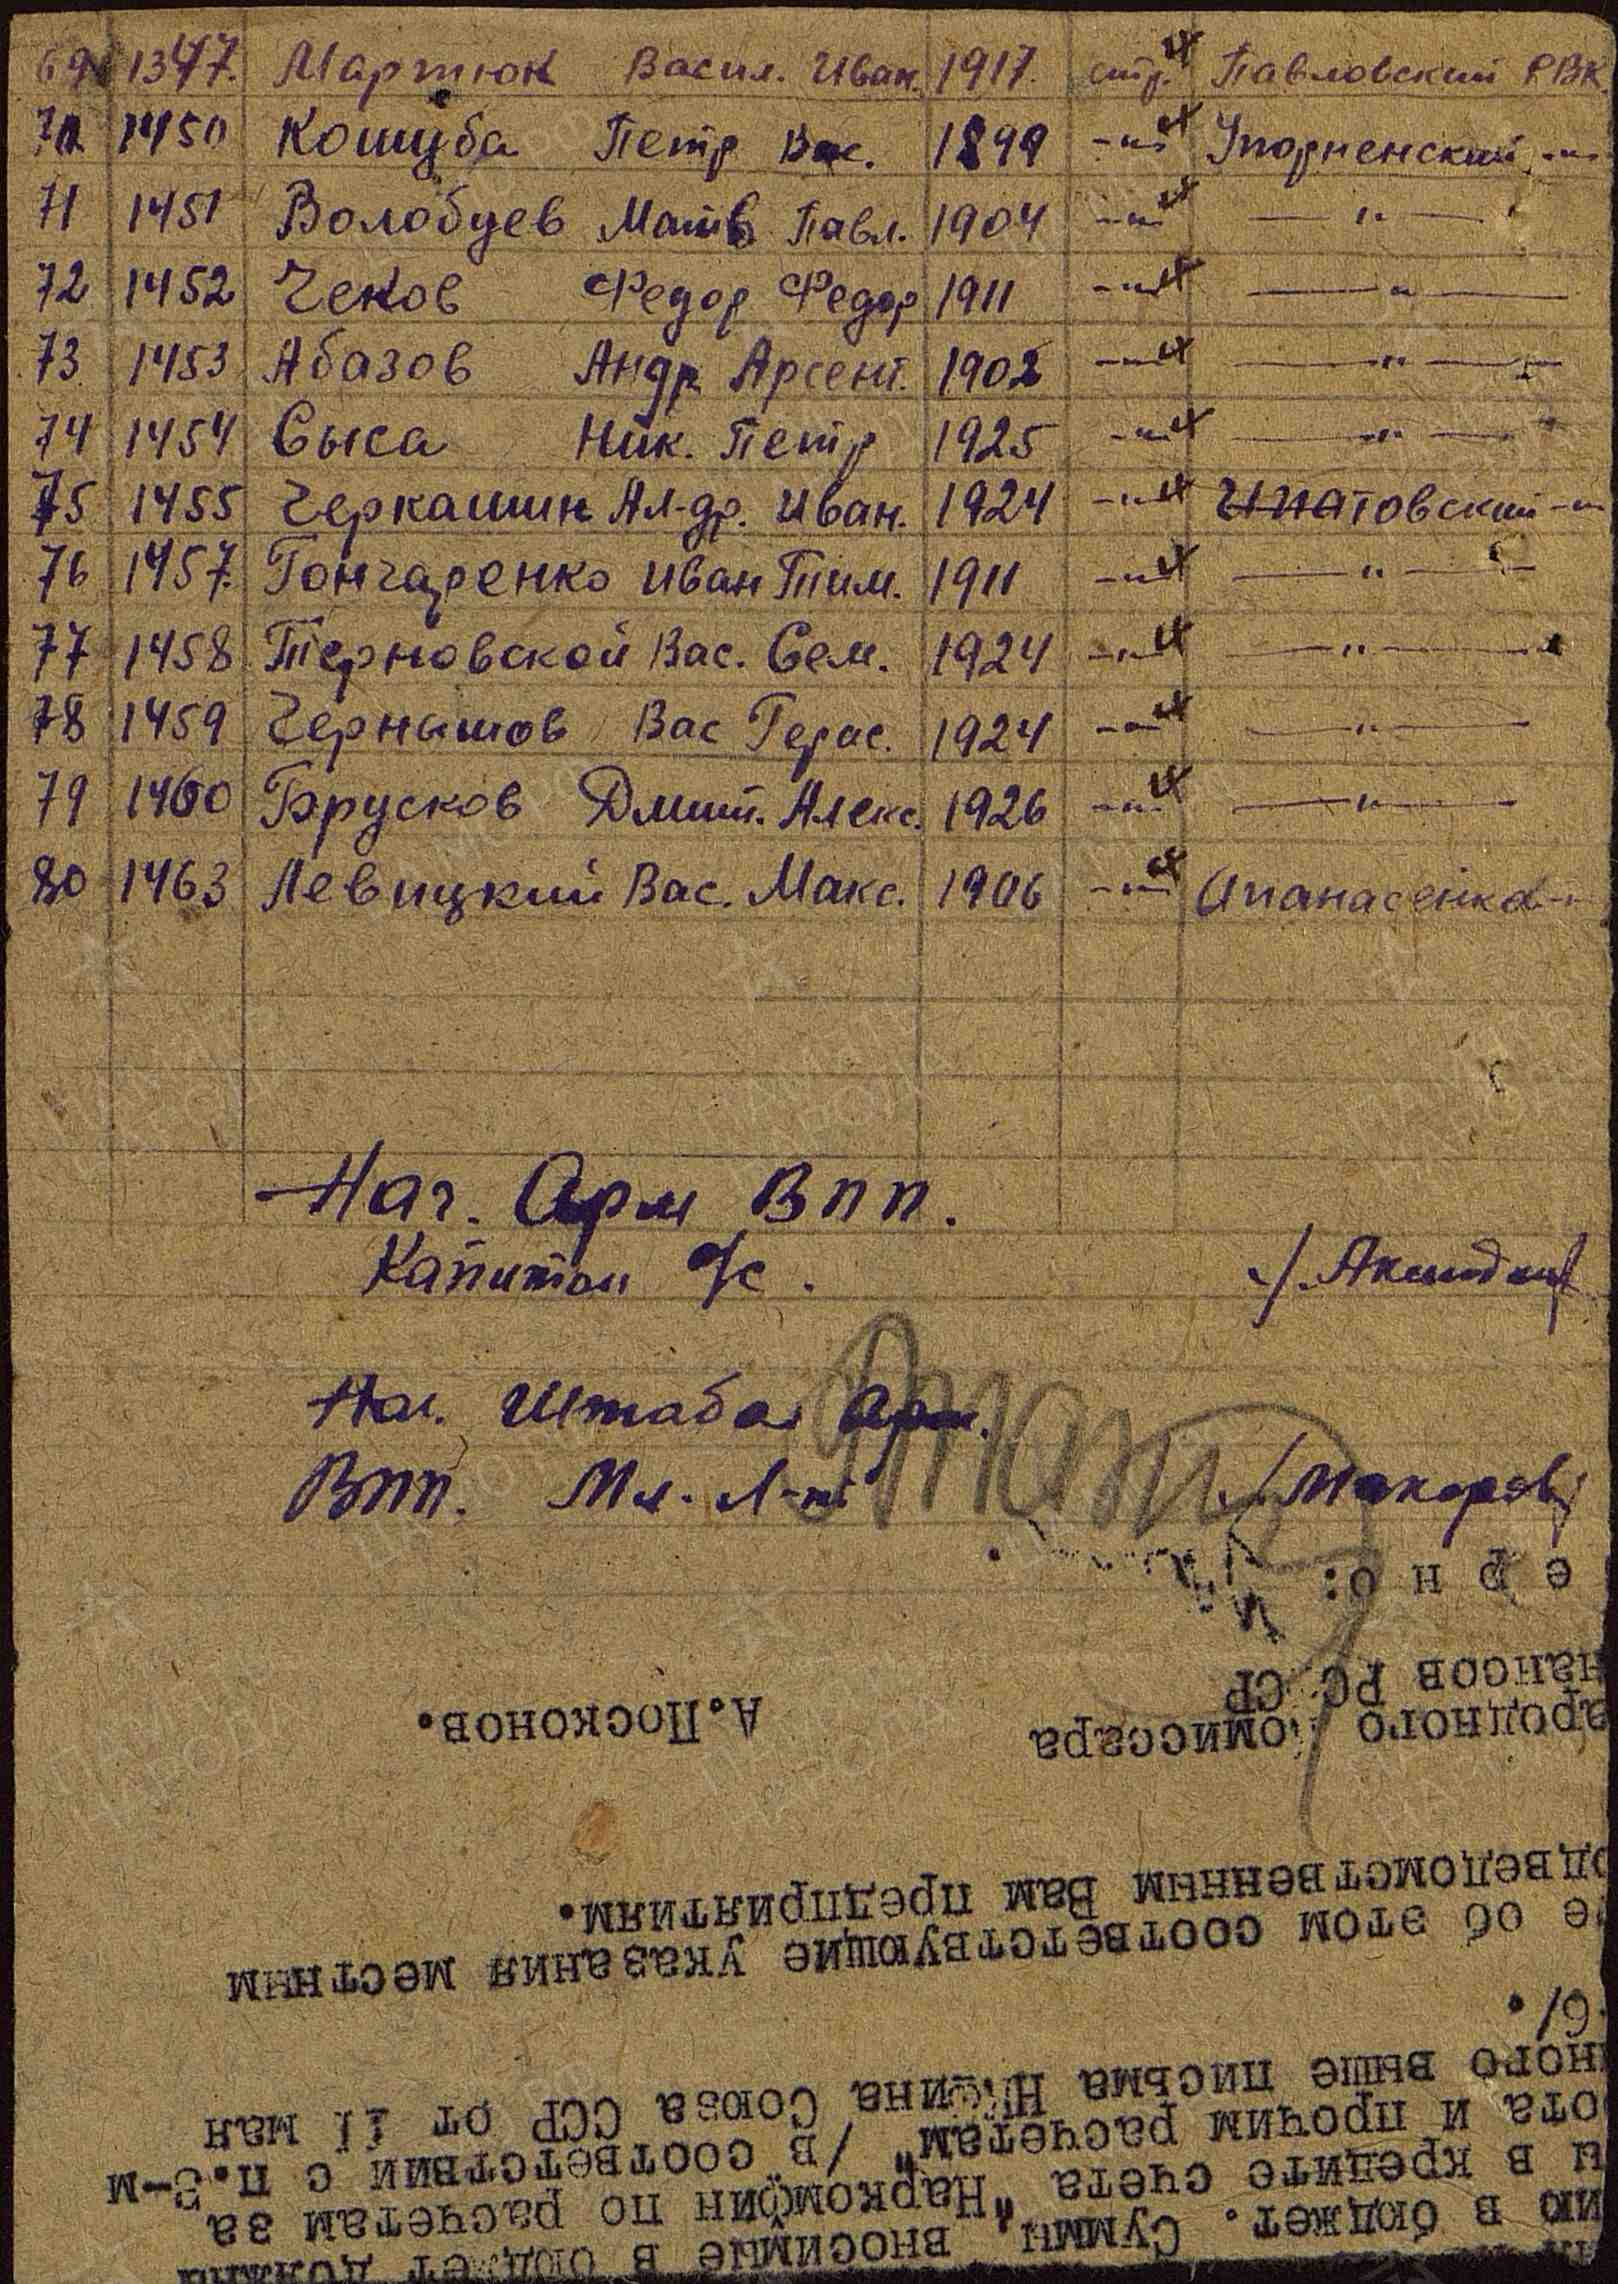 69 1347. Мартюк Васил. Иван. 1917. стр. Павловский РВК
70 1450 Кошуба Петр Вас. 1899 -"- Упорненский -"-
71 1451 Волобуев Матв Павл. 1904 -"- — " —
72 1452 Чеков Федор Федор 1911 -"- — " —
73 1453 Абазов Андр Арсент. 1902 -"- — " —
74 1454 Сыса Ник. Петр 1925 -"- — " —
75 1455 Черкашин Ал-др. Иван. 1924 -"- Ипатовский -"-
76 1457. Гончаренко Иван Тим. 1911 -"- — " —
77 1458 Терновской Вас. Сем. 1924 -"- — " —
78 1459 Чернышов Вас Герас. 1924 -"- — " —
79 1460 Брусков Дмит. Алекс. 1926 -"- — " —
80 1463 Левицкий Вас. Макс. 1906 -"- Апанасенков -"-
Нач. Арм ВПП.
Капитан а/с.
Нач. Штаба Арм.
ВПП. Мл. Л-нт /Макаров/
ерно:
нансов РС СР
ародного омиссара А.Посконов.
одведомственным Вам предприятиям.
е об этом соответствующие указания местным
6/.
ного выше письма НКФина Союза ССР от 11 мая
ота и прочим расчетам" /в соответствии с п.3-м
и в кредите счета "Наркомфин по расчетам за
ию в бюджет. Суммы, вносимые в бюджет должны